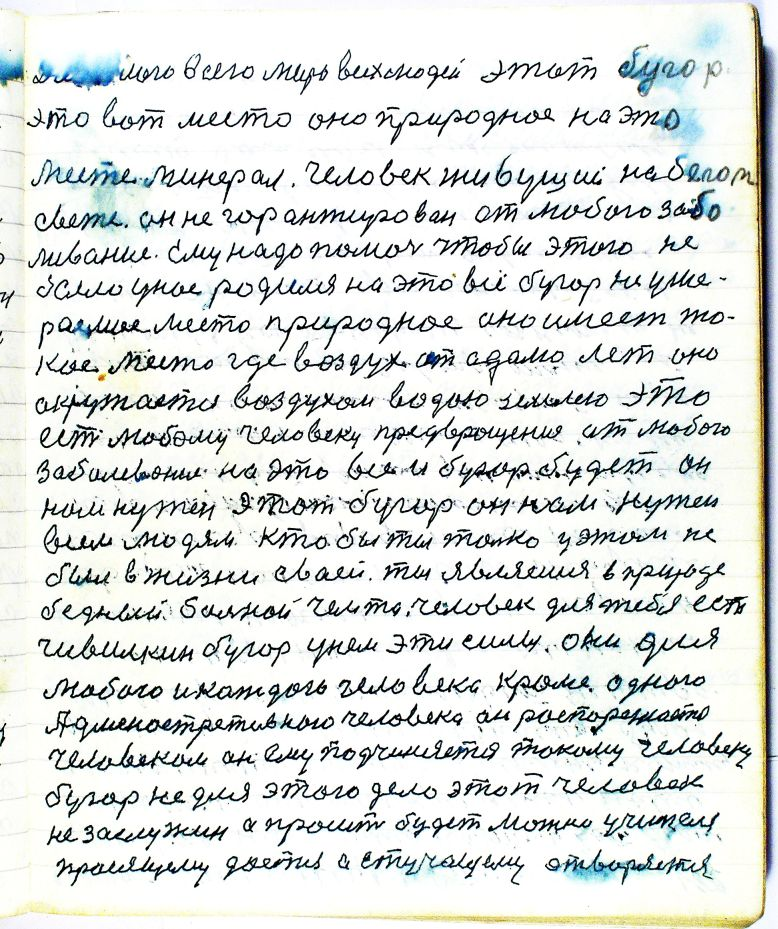 лого всего миро всихлюдей этот бугор.
это вот место оно природное на это
месте. минерал. человек живущий набелом
свете. он не горантирован от любого забо
ливание. Ему надо помоч чтобы этого не
было унас родился на это всё бугор не уме-
раемое место природное оно имеет то-
кое место где воздух от адамо лет оно
окружается воздухом водою землею это
есть любому человеку предврощение от любого
заболевание на это все и бугор будет он
нам нужен этот бугор он нам нужен
всем людям кто бы ты толко у этом не
был в жизни своей. ты являешся в природе
бедный болной чемто. человек для тебя есть
чивилкин бугор унем эти силы. они для
любого и каждого человека кроме одного
Адменостротивного человека он роспоражаето
человеком он Ему подчиняется токому человеку
бугор не для этого дело этот человек
не заслужил а просить будет можно учителя
просящему дается а стучащему отворяется